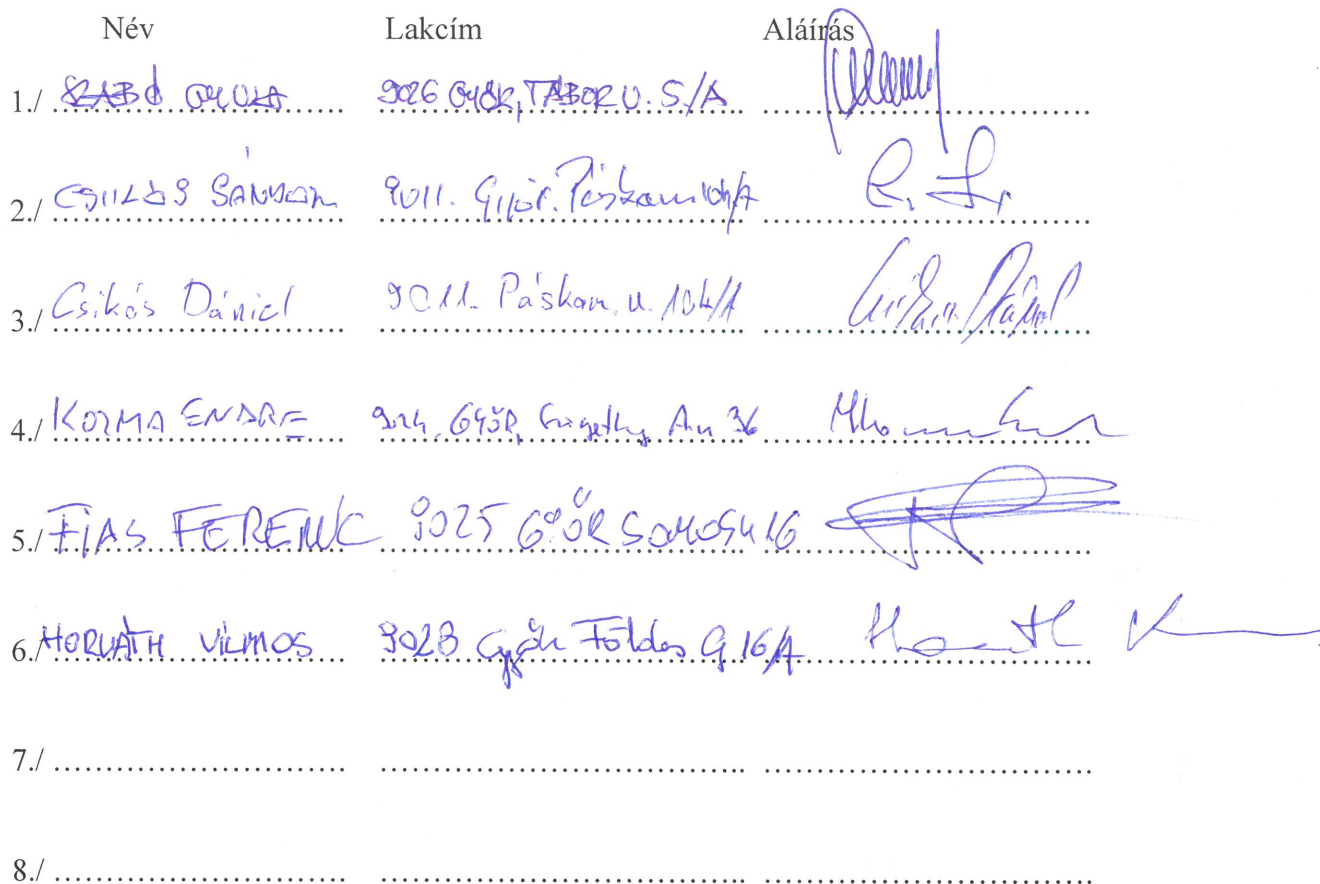 Név Lakcím Aláírás
1./ SZABÓ GYULA 9026 GYŐR, TÁBOR U. 5/A
2./ CSIKÓS SÁNDOR 9011. Győr. Páskom u 104/A
3./ Csikós Dániel 9011. Páskom. u. 104/A
4./ KOZMA ENDRE 9024, GYŐR, 36
5./ FIAS FERENC 9025 GYŐR SOMOS U 16
6./ HORVÁTH VILMOS 9028 Győr Földes G 16/A
7./
8./